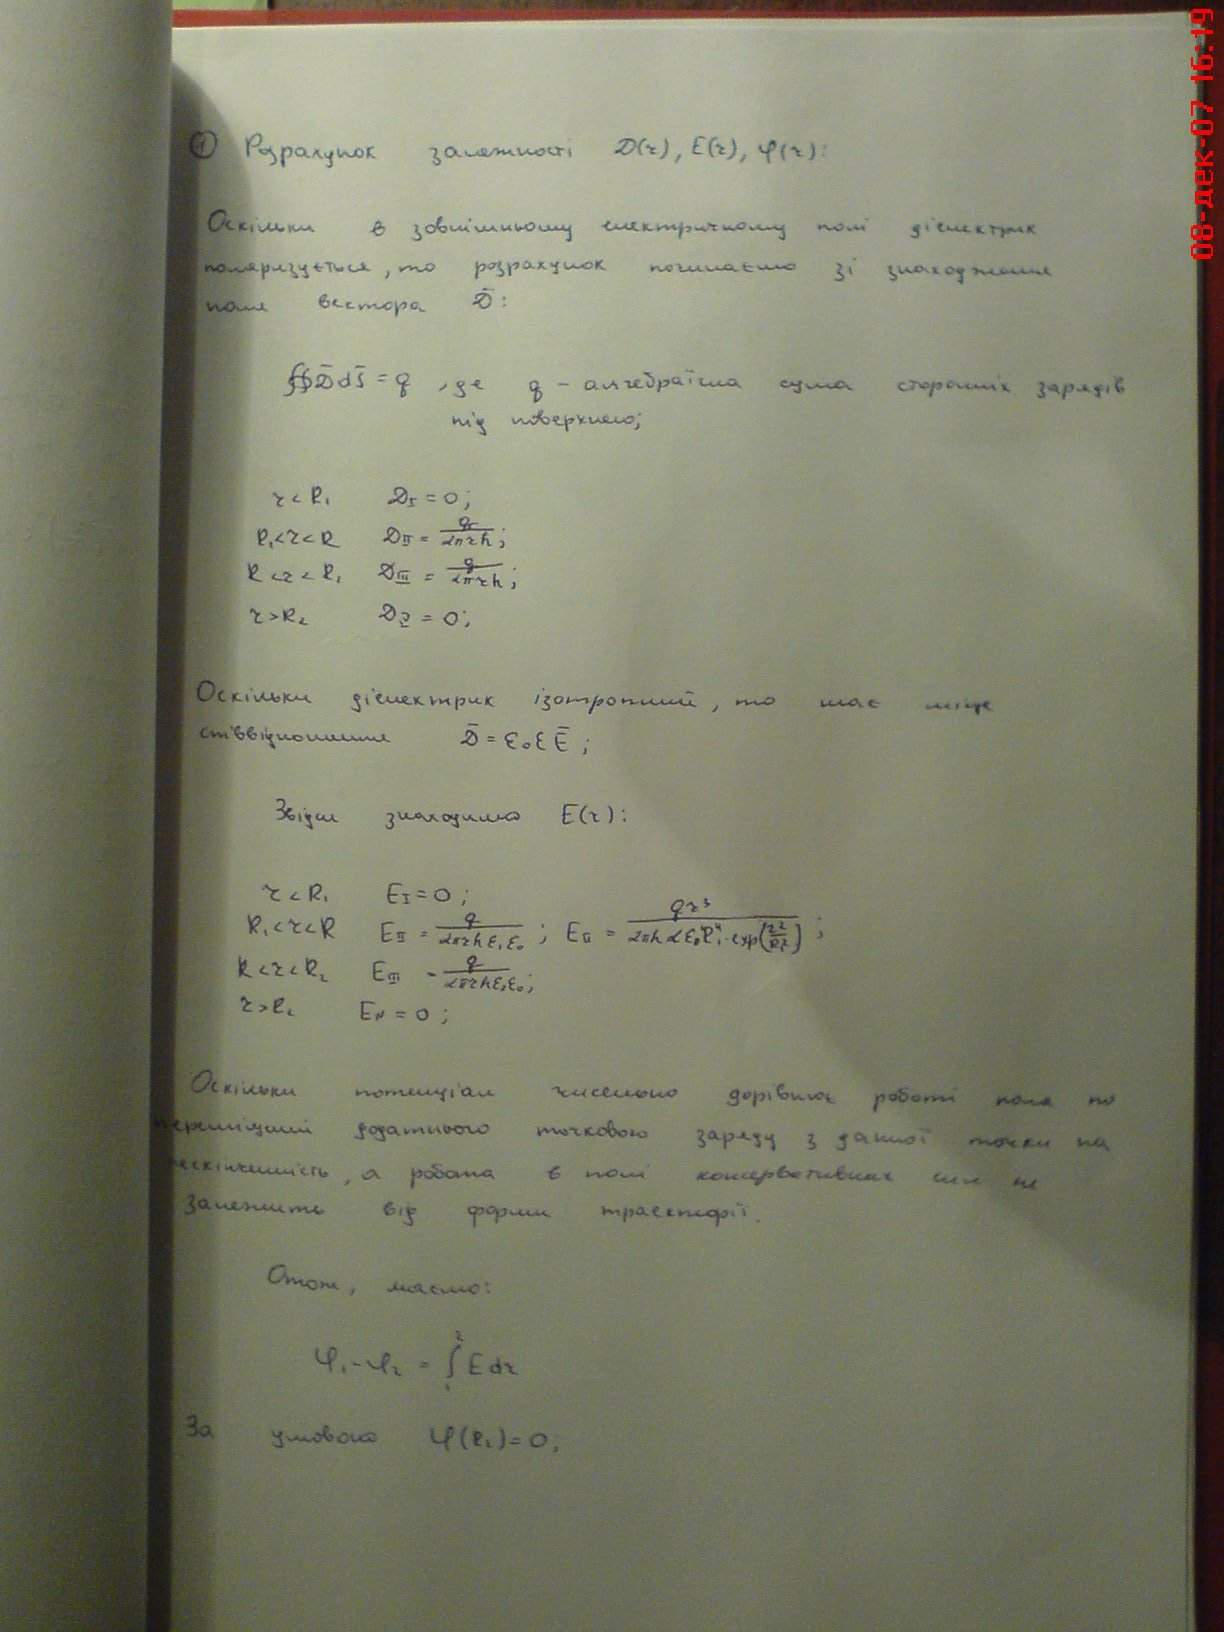 08-дек-07 16:19
① Розрахунок залежності D(r), E(r), φ(r):
Оскільки в зовнішньому електричному полі діелектрик
поляризується, то розрахунок починаємо зі знаходження
поля вектора D̄:
∯D̄dS̄ = q , де q – алгебраїчна сума сторонніх зарядів
під поверхнею;
r < R₁ D_I = 0;
R₁<r<R D_II = q/(2πrh);
R<r<R₂ D_III = q/(2πrh);
r>R₂ = 0;
Оскільки діелектрик ізотропний, то має місце
співвідношення D̄ = ε₀εĒ;
Звідси знаходимо E(r):
r < R₁ E_I = 0;
R₁<r<R E_II = q/(2πrhε₁ε₀); E_II = qr³/(2πhαε₀R₁⁴·exp(r²/R₁²));
R<r<R₂ E_III = q/(2πrhε₂ε₀);
r>R₂ E_IV = 0;
Оскільки потенціал чисельно дорівнює роботі поля по
переміщенні додатнього точкового заряду з даної точки на
нескінченність, а робота в полі консервативних сил не
залежить від форми траєкторії.
Отож, маємо:
φ₁-φ₂ = ∫₁² E dr
За умовою φ(R₂)=0;